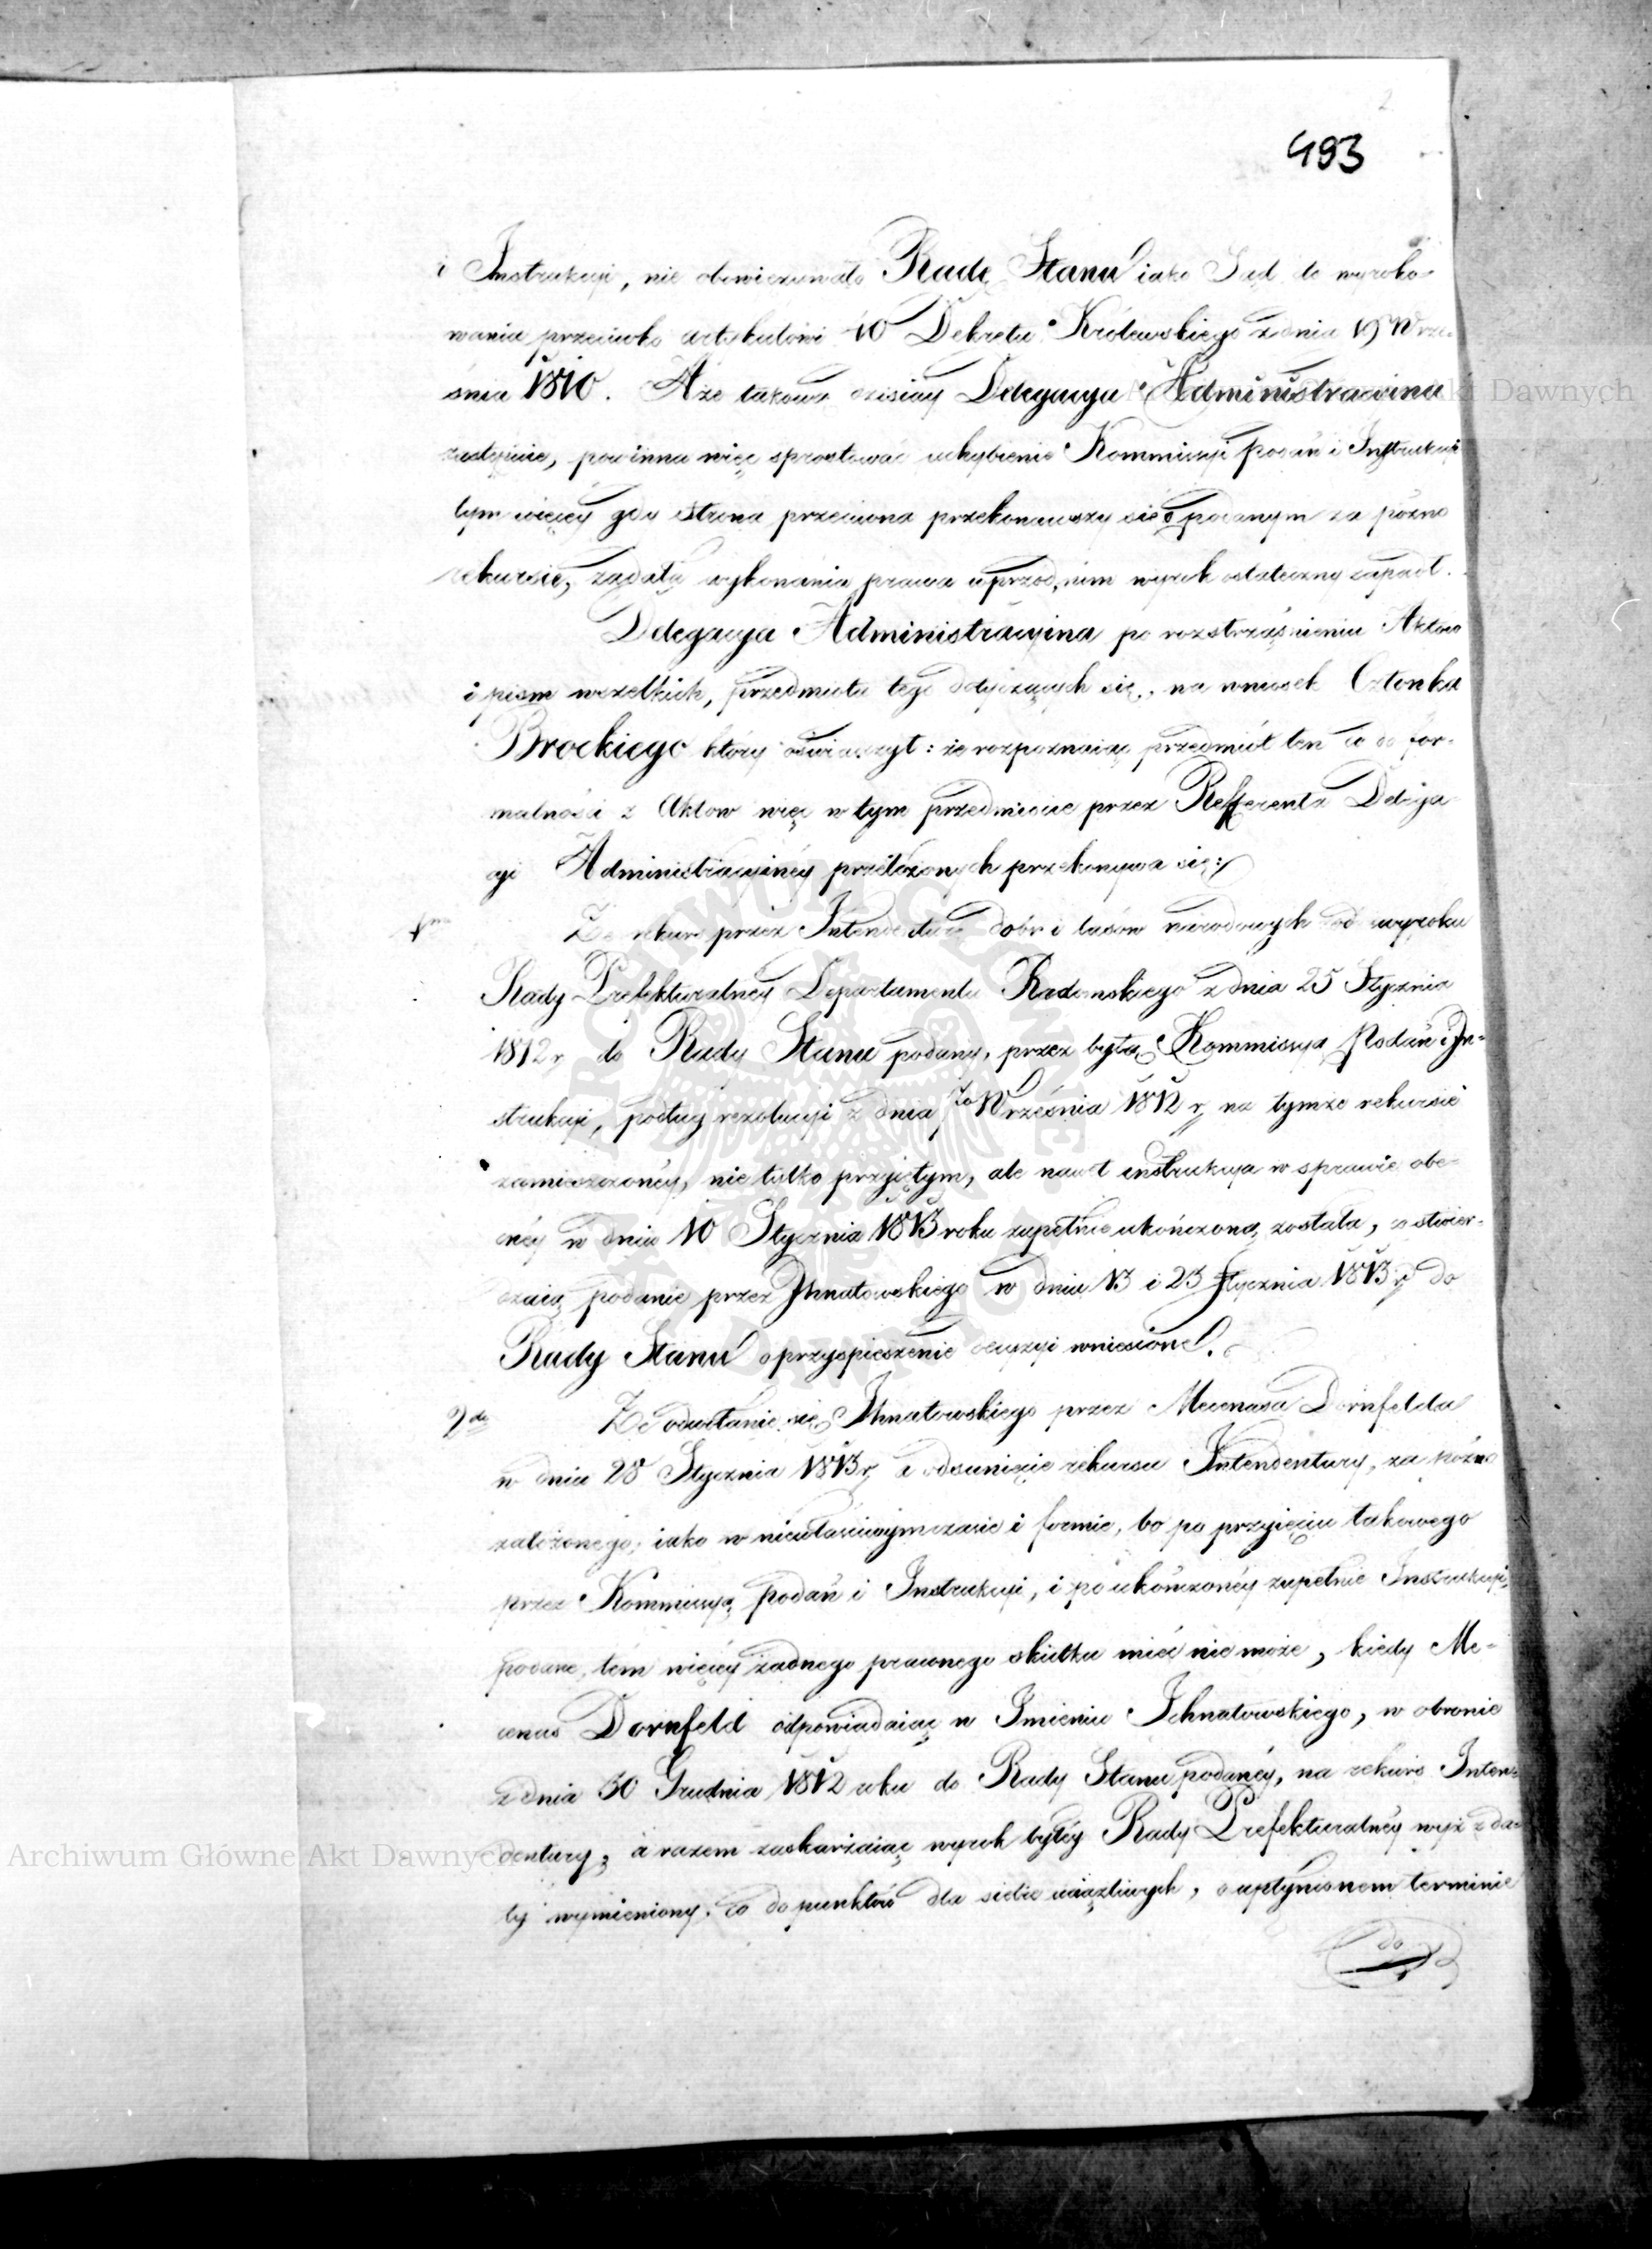 493
i Instrukcyi, nie obowiązywało Radę Stanu iako Sąd do wyroko-
wania przeciwko artykułowi 10 Dekretu Królewskiego z dnia 19 Wrze-
śnia 1810. A że takową dzisiay Delegacya Administracyina
zastępuie, powinna więc sprostować uchybienie Kommissyi Podań i Instrukcyi
tym więcey gdy strona przeciwna przekonawszy się o podanym za poźno
rekursie, żądała wykonania prawa wprzód, nim wyrok ostateczny zapadł.
Delegacya Administracyina po rozstrząśnieniu Aktów
i pism wszelkich, przedmiotu tego dotyczących się, na wniosek Członka
Brockiego który oświadczył: że rozpoznaiąc przedmiot ten co do for-
malności z Aktow więc w tym przedmiocie przez Refferenta Delega-
cyi Administracyiney przełożonych przekonywa się:
1mo
Że rekurs przez Intendenturę dóbr i lasów narodowych od wyroku
Rady Prefekturalney Departamentu Radomskiego z dnia 25 Stycznia
1812 r. do Rady Stanu podany, przez byłą Kommissyą Podań i In-
strukcyi, podług rezolucyi z dnia Września 1812 r. na tymże rekursie
zamieszczoney, nie tylko przyiętym, ale nawet instrukcya w sprawie obe-
cney w dniu 10 Stycznia 1813 roku zupełnie ukończoną została, co stwier-
dzaią podanie przez Ihnatowskiego w dniu 13 i 23 Stycznia 1813 r. do
Rady Stanu o przyspieszenie decyzyi wniesione.
2do
Że odwołanie się Ihnatowskiego przez Mecenasa Dornfelda
w dniu 28 Stycznia 1813 r. o odsunięcie rekursu Intendentury, za poźno
założonego, iako w niewłaściwym czasie i formie, bo po przyięciu takowego
przez Kommissyą podań i Instrukcyi, i po ukończoney zupełnie Instrukcyi,
podane, tém więcey żadnego prawnego skutku mieć nie może, kiedy Me-
cenas Dornfeld odpowiadaiąc w Imieniu Ichnatowskiego, w obronie
z dnia 30 Grudnia 1812 roku do Rady Stanu podaney, na rekurs Inten-
dentury, a razem zaskarżaiąc wyrok byłey Rady Prefekturalney wyż z da-
ty wymieniony, co do punktów dla siebie uciążliwych, o upłynionem terminie
do
Archiwum Główne Akt Dawnych